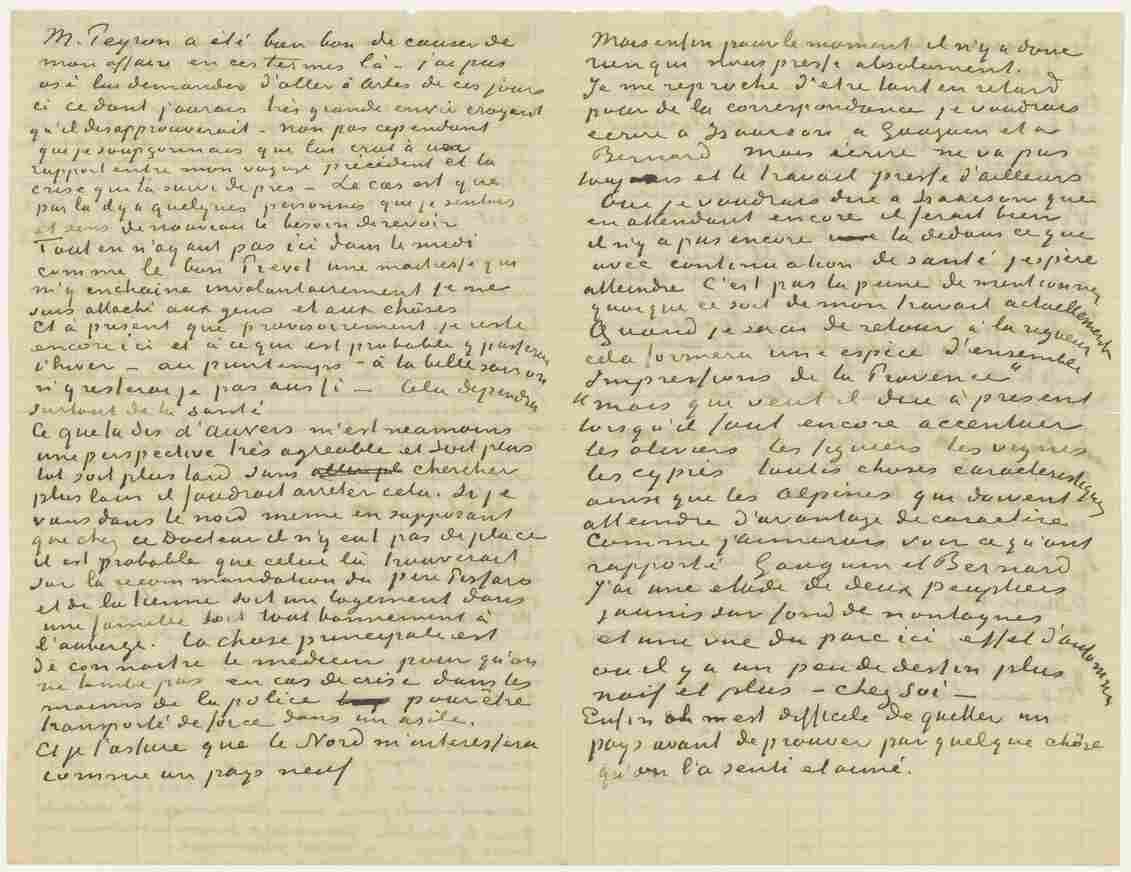 M. Peyron a été bien bon de causer de
mon affaire en ces termes là – j'ai pas
osé lui demander d'aller à Arles de ces jours
ci ce dont j'aurais très grande envie croyant
qu'il desapprouverait – non pas cependant
que je soupçonnais que lui crut à un
rapport entre mon voyage précédent et la
crise qui l'a suivi de près – Le cas est que
par là il y a quelques personnes que je sentais
et sens de nouveau le besoin de revoir
Tout en n'ayant pas ici dans le midi
comme le bon Prevot une maitresse qui
m'y enchaine involontairement je me
suis attaché aux gens et aux choses
Et à présent que provisoirement je reste
encore ici et à ce qui est probable y passerai
l'hiver – au printemps – à la belle saison
n'y resterai je pas aussi – Cela dependra
surtout de la santé
Ce que tu dis d'Auvers m'est neamoins
une perspective très agréable et soit plus
tot soit plus tard sans chercher
plus loin il faudrait arreter cela. Si je
vais dans le nord meme en supposant
que chez ce Docteur il n'y eut pas de place
il est probable que celui là trouverait
sur la recommandation du père Pissaro
et de la tienne soit un logement dans
une famille soit tout bonnement à
l'auberge. La chose principale est
de connaitre le médecin pour qu'on
ne tombe pas en cas de crise dans les
mains de la police pour être
transporté de force dans un asile.
Et je t'assure que le Nord m'interessera
comme un pays neuf
Mais enfin pour le moment il n'y a donc
rien qui nous presse absolument.
Je me reproche d'etre tant en retard
pour de la correspondance je voudrais
écrire à Isaäcson a Gauguin et a
Bernard mais écrire ne va pas
toujours et le travail presse d'ailleurs
Oui je voudrais dire à Isaäcson que
en attendant encore il ferait bien
il n'y a pas encore là dedans ce que
avec continuation de santé j'espère
atteindre C'est pas la peine de mentionner
quoique ce soit de mon travail actuellement
Quand je serai de retour à la rigueur
cela formera une espèce d'ensemble
Impressions de la Provence"
"mais que veut il dire à présent
lorsqu'il faut encore accentuer
les oliviers les figuiers les vignes
les cyprès toutes choses caracteristiques
ainsi que les Alpines qui doivent
atteindre d'avantage de caractère
Comme j'aimerais voir ce qu'ont
rapporté Gauguin et Bernard
J'ai une etude de deux peupliers
jaunis sur fond de montagnes
et une vue du parc ici effet d'automne
ou il y a un peu de dessin plus
naif et plus – chez soi –
Enfin m'est difficile de quitter un
pays avant de prouver par quelque chose
qu'on l'a senti et aimé.